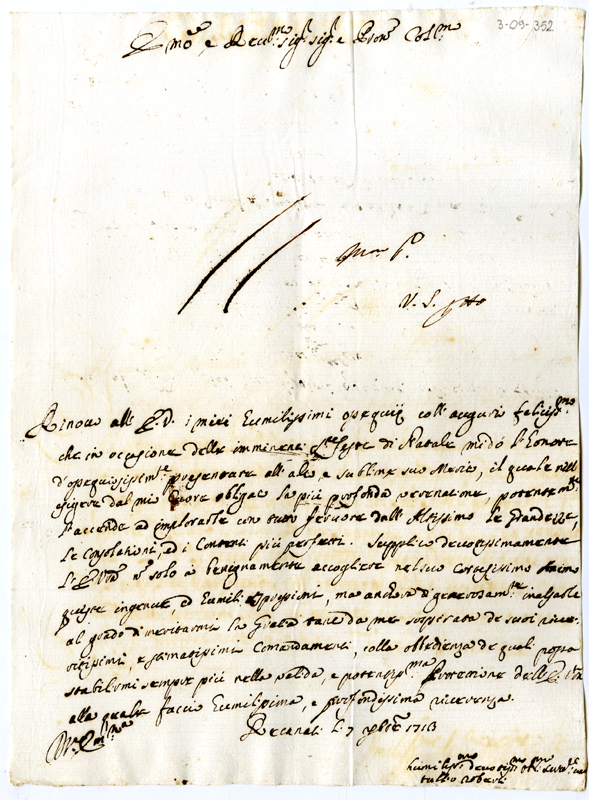 3-09-352
Emo, e Revmo Sigr, Sigr e Pron Colmo
V. S.
Rinovo all' E.V. i miei humilissimi ossequij coll' augurio felicissmo
che in occasione delle imminenti Ste Feste di Natale mi dò l'honore
d'ossequiosissimte presentare all' alto, e sublime suo Merito, il quale nell'
esigere dal mio Cuore obligato la più profonda veneratione, potentemte
l'accende ad implorarle con tutto fervore dall' Altissimo le grandezze,
le Consolationi, ed i Contenti più perfetti. Supplico devotissimamente
l'E.V. non solo à benignamente accogliere nel suo Cortesissimo Animo
queste ingenue, ed humili espressioni, ma anche di generosamte inalzarle
al grado di meritarmi la Gratia tanto da me sospirata de suoi river
itissimi, e stimatissimi Comandamenti, colla obbedienza de quali possa
stabilirmi sempre più nella valida, e potentissma Protezione dell' E.V.
alla quale faccio humilissima, e profondissima riverenza.
Recanati li 7 Xbre 1713
humilissmo devotissmo